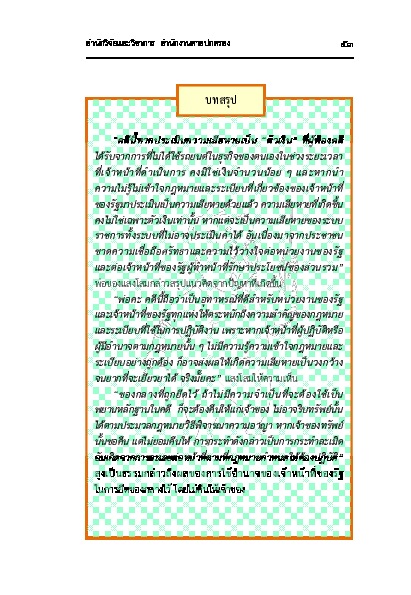 สำนักวิจัยและวิชาการ สำนักงานศาลปกครอง ๕๓
บทสรุป
"คดีนี้หากประเมินความเสียหายเป็น "ตัวเงิน" ที่ผู้ฟ้องคดี
ได้รับจากการที่ไม่ได้ใช้รถยนต์ในธุรกิจของตนเองในช่วงระยะเวลา
ที่เจ้าหน้าที่ดำเนินการ คงมิใช่เงินจำนวนน้อย ๆ และหากนำ
ความไม่รู้ไม่เข้าใจกฎหมายและระเบียบที่เกี่ยวข้องของเจ้าหน้าที่
ของรัฐมาประเมินเป็นความเสียหายด้วยแล้ว ความเสียหายที่เกิดขึ้น
คงไม่ใช่เฉพาะตัวเงินเท่านั้น หากแต่จะเป็นความเสียหายของระบบ
ราชการทั้งระบบที่ไม่อาจประเมินค่าได้ อันเนื่องมาจากประชาชน
ขาดความเชื่อถือศรัทธาและความไว้วางใจต่อหน่วยงานของรัฐ
และต่อเจ้าหน้าที่ของรัฐผู้ทำหน้าที่รักษาประโยชน์ของส่วนรวม"
พ่อของแสงโสมกล่าวสรุปแนวคิดจากปัญหาที่เกิดขึ้น
"พ่อคะ คดีนี้ถือว่าเป็นอุทาหรณ์ที่ดีสำหรับหน่วยงานของรัฐ
และเจ้าหน้าที่ของรัฐทุกแห่งให้ตระหนักถึงความสำคัญของกฎหมาย
และระเบียบที่ใช้ในการปฏิบัติงาน เพราะหากเจ้าหน้าที่ผู้ปฏิบัติหรือ
ผู้มีอำนาจตามกฎหมายนั้น ๆ ไม่มีความรู้ความเข้าใจกฎหมายและ
ระเบียบอย่างถูกต้อง ก็อาจส่งผลให้เกิดความเสียหายเป็นวงกว้าง
จนยากที่จะเยียวยาได้ จริงมั้ยคะ" แสงโสมให้ความเห็น
"ของกลางที่ถูกยึดไว้ ถ้าไม่มีความจำเป็นที่จะต้องใช้เป็น
พยานหลักฐานในคดี ก็จะต้องคืนให้แก่เจ้าของ ไม่อาจริบทรัพย์นั้น
ได้ตามประมวลกฎหมายวิธีพิจารณาความอาญา หากเจ้าของทรัพย์
นั้นขอคืน แต่ไม่ยอมคืนให้ การกระทำดังกล่าวเป็นการกระทำละเมิด
อันเกิดจากการละเลยต่อหน้าที่ตามที่กฎหมายกำหนดให้ต้องปฏิบัติ"
ลุงเป็นธรรมกล่าวถึงผลของการใช้อำนาจของเจ้าหน้าที่ของรัฐ
ในการยึดของกลางไว้ โดยไม่คืนให้เจ้าของ